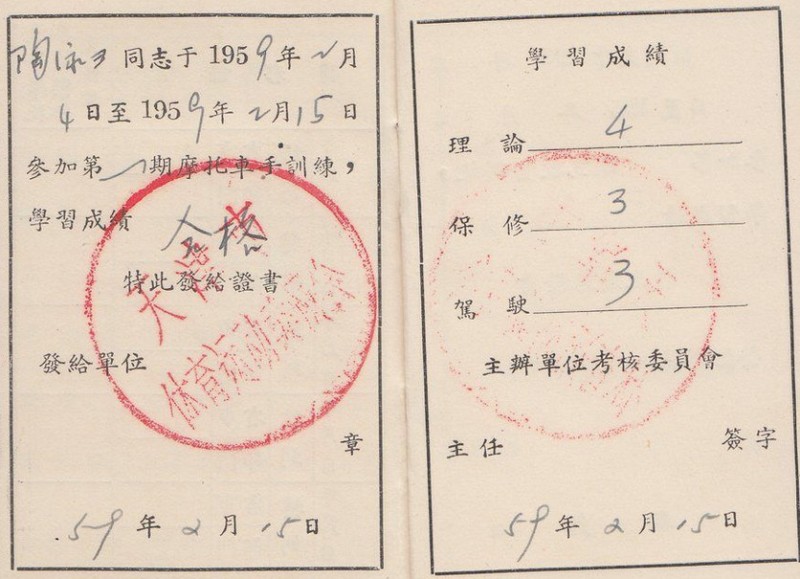 陶 同志于1959年2月
4日至1959年2月15日
參加第 期摩托車手訓練，
學習成績
合格
特此發給證書
發給單位
天津市
体育运动委員会
章
59年2月15日
學習成績
理論 4
保修 3
駕駛 3
主辦單位考核委員會
主任 簽字
59年2月15日